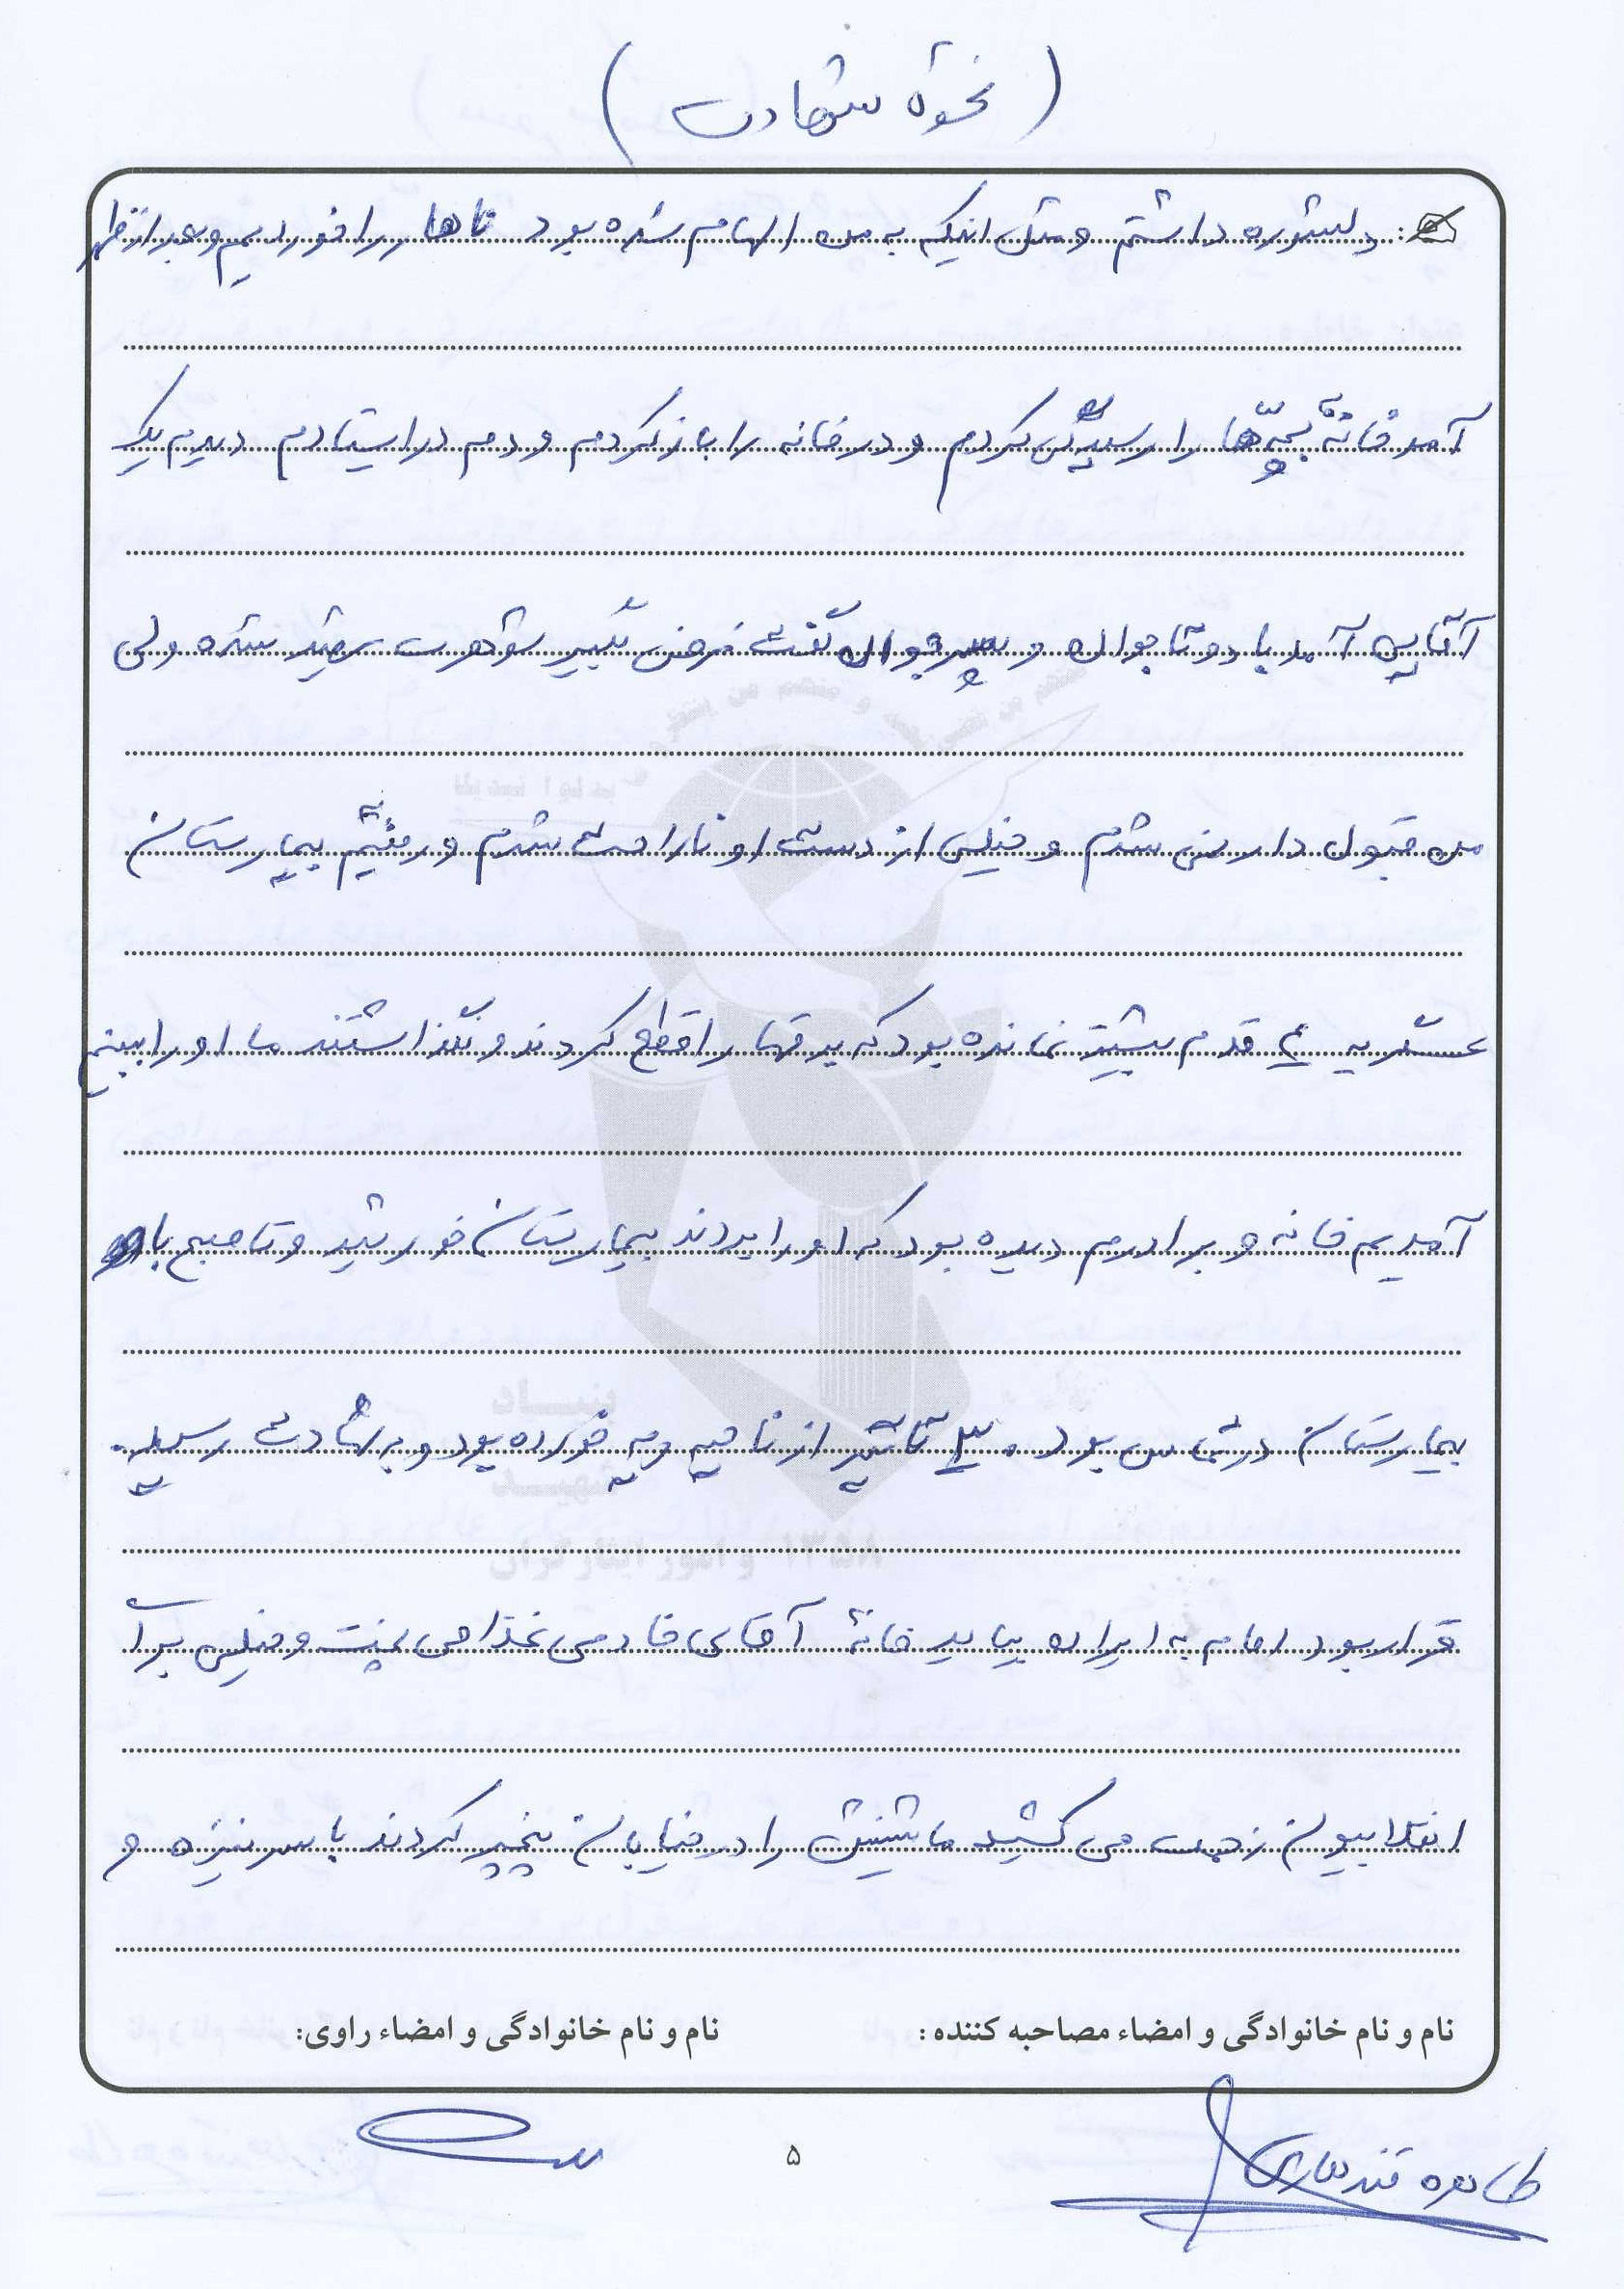 (نحوه شهادت)
: دلشوره داشتم و مثل اینکه به من الهام شده بود ناهار را خوردیم و بعد از ظهر
آمد خانه بچه‌ها را کردم و در خانه را باز کردم و دم در ایستادم دیدم یک
آقایی آمد با دو تا جوان و پسر جوان گفت فرض بگیر شوهرت شده ولی
من قبول دار نمی شدم و خیلی از دست او ناراحت شدم و رفتیم بیمارستان
عشریه ۴ قدم بیشتر نمانده بود که برقها را قطع کردند و نگذاشتند ما او را ببینیم
آمدیم خانه و برادرم دیده بود که او را بردند بیمارستان خورشید و تا صبح با
بیمارستان در تماس بود. ۳ تا تیر از ناحیه خورده بود و به شهادت رسید.
قرار بود امام به ایران بیاید خانه آقای خادمی غذا می پخت و خیلی برا
انقلابیون زحمت می کشید ماشینش را در خیابان پنچر کردند با سر نیزه و
نام و نام خانوادگی و امضاء مصاحبه کننده: نام و نام خانوادگی و امضاء راوی:
طاهره قندهاری
۵